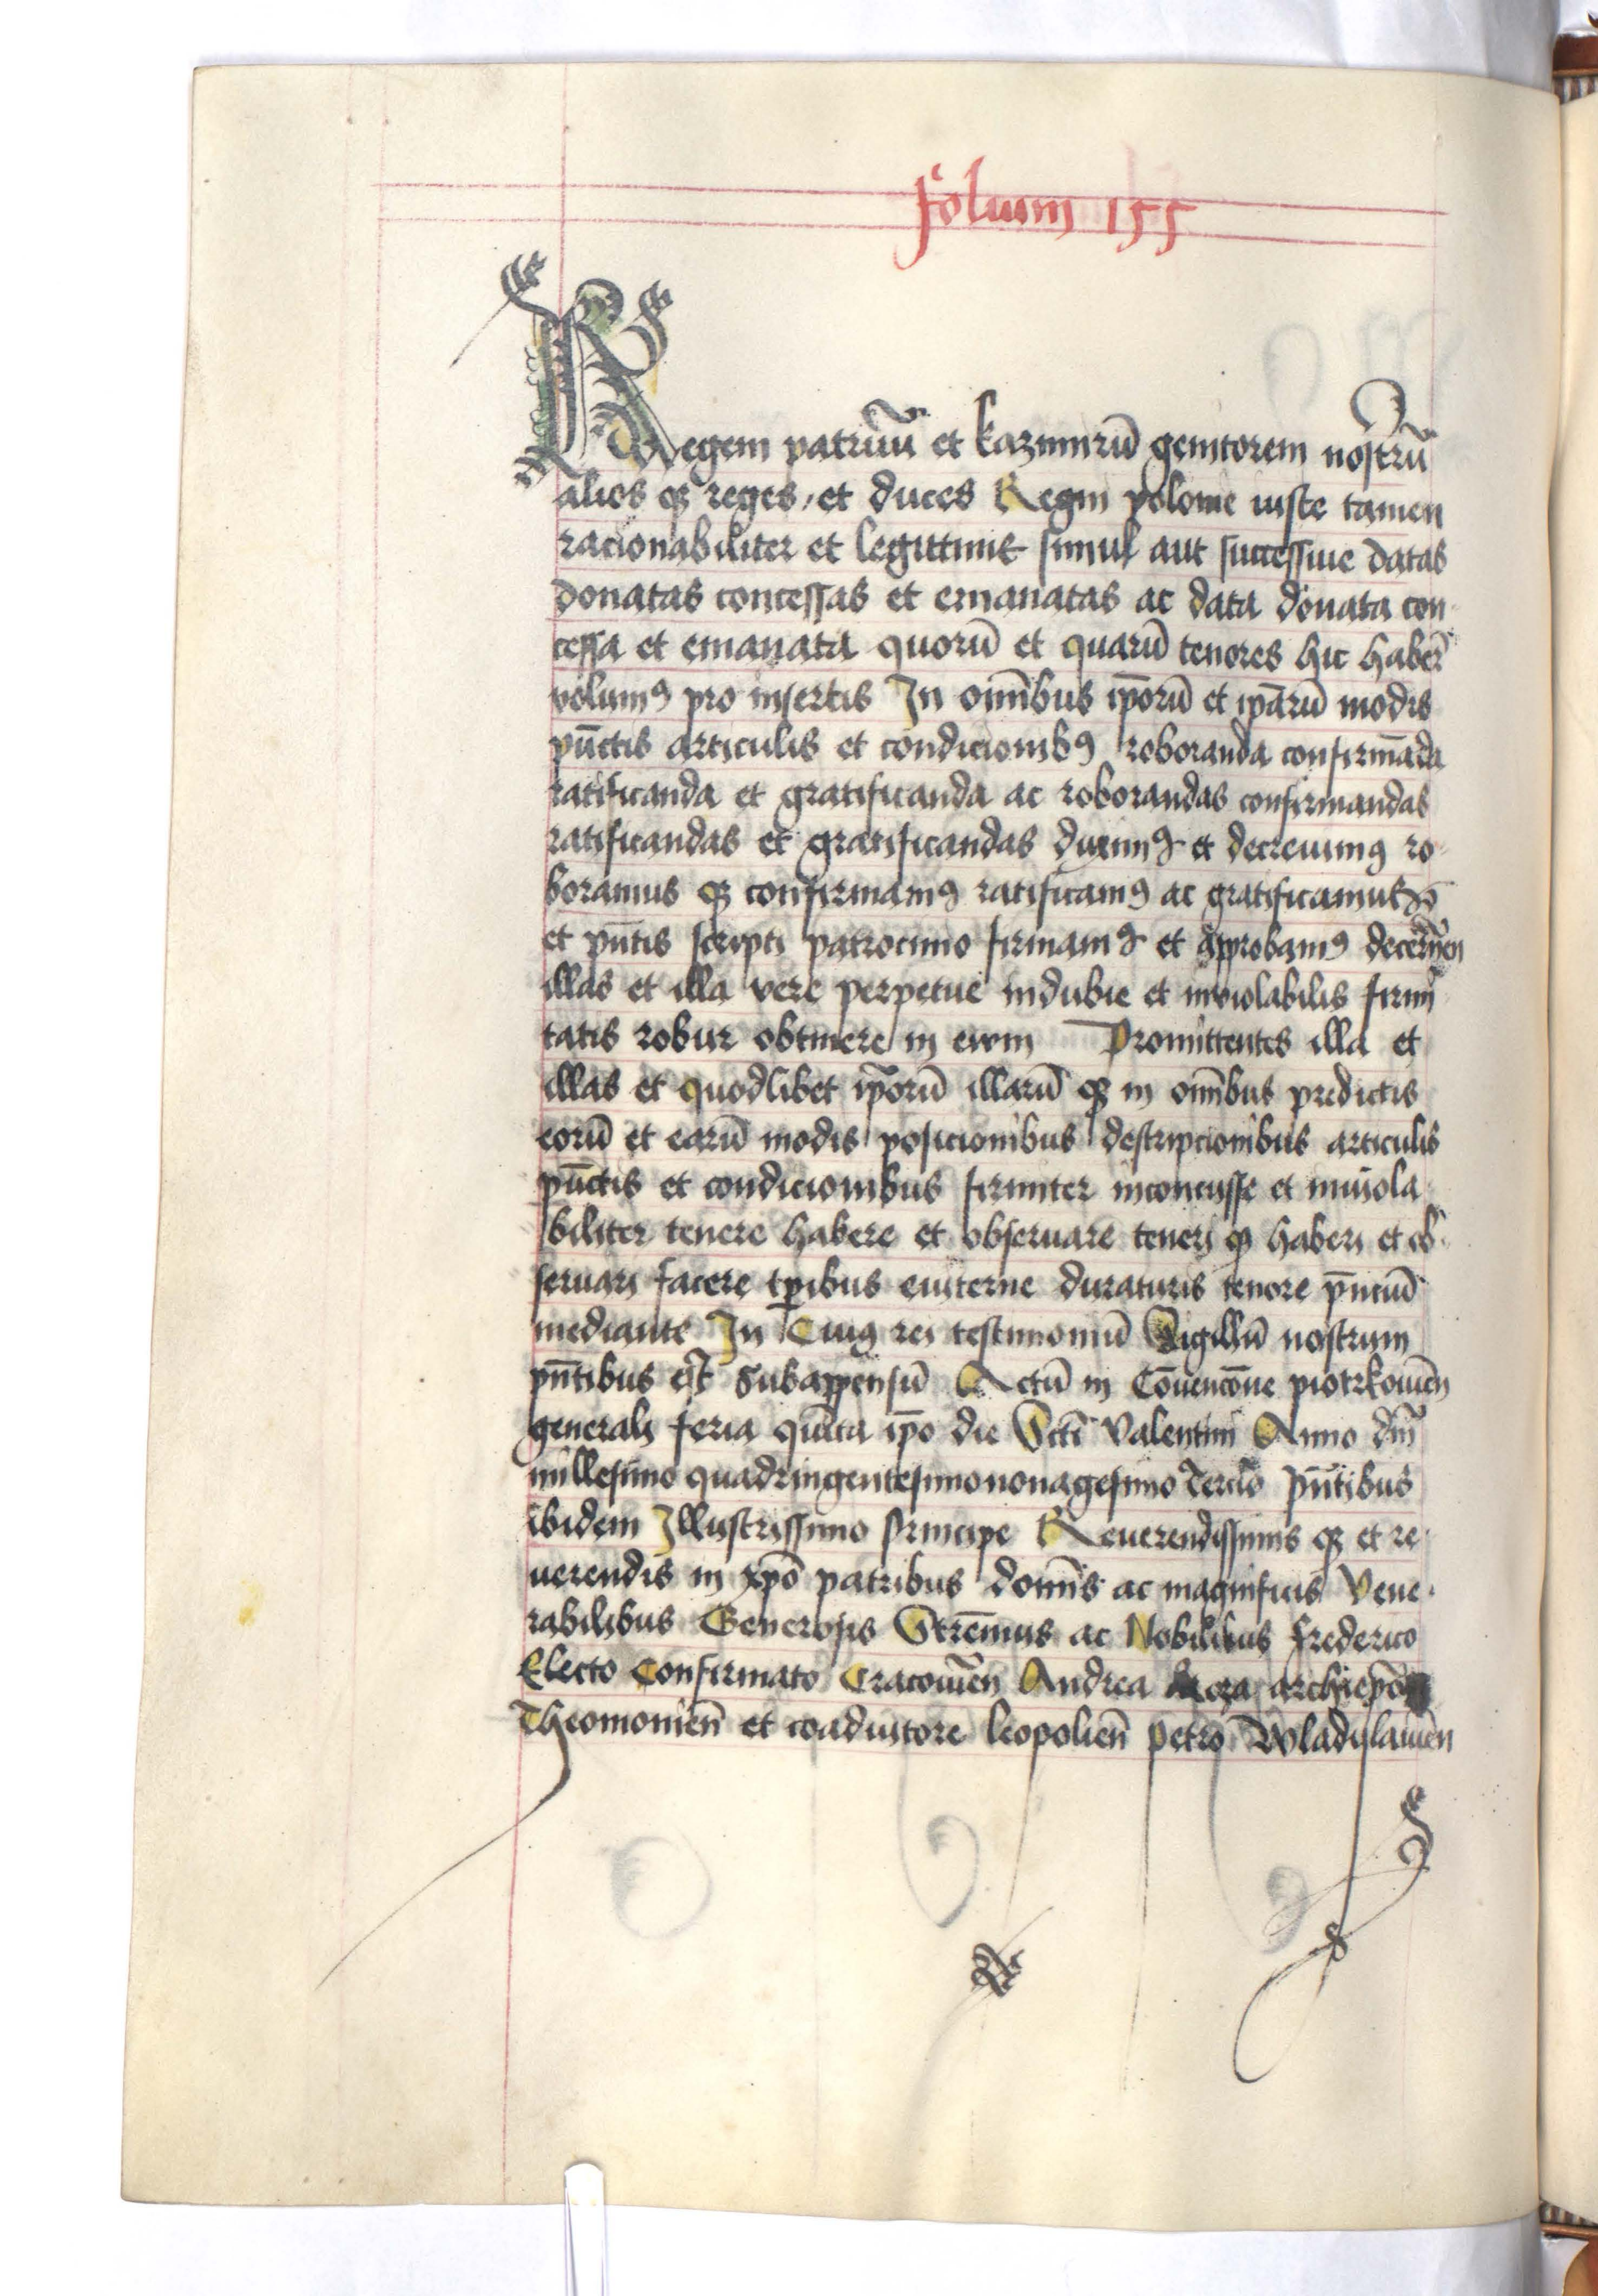 folium 155
Regem patruū et kazimirū genitorem nostrū
alios qȝ reges, et duces Regni polonie iuste tamen
racionabiliter et legittime simul aut successiue datas
donatas concessas et emanatas ac data donata con
cessa et emanata quorū et quarū tenores hic haberi
volumꝯ pro insertis In om̄ibus ip̄orū et ip̄arū modis
pūctis articulis et condicionibꝯ roboranda confirmāda
ratificanda et gratificanda ac roborandas confirmandas
ratificandas et gratificandas duximꝯ et decreuimꝯ ro
boramus qȝ confirmamꝯ ratificamꝯ ac gratificamus
et pn̄tis scripti patrocinio firmamꝯ et approbamꝯ decernēn
illas et illa vere perpetue indubie et inviolabilis firmi
tatis robur obtinere in ewm Promittentes illa et
illas et quodlibet ip̄orū illarū qȝ in om̄ibus predictis
eorū et earū modis posicionibus descripcionibus articulis
pūctis et condicionibus firmiter inconcusse et inuiola
biliter tenere habere et obseruare teneri qȝ haberi et ob
seruari facere tp̄ibus euiterne duraturis tenore pn̄ciū
mediante In Cuiꝯ rei testimoniū Sigillū nostrum
pn̄tibus est Subappensū Actū in Cōuencōne piotrkouiēn
generali feria quīta ip̄o die Scti Valentini Anno dm̄
millesimo quadringentesimo nonagesimo Tercio pn̄tibus
ibidem Illustrissimo Principe Reuerendissimis qȝ et re
uerendis in xpō patribus domīs ac magnificis Vene
rabilibus Generosis Strēnuis ac Nobilibus frederico
Electo Confirmato Cracouiēn Andrea Roza archiepō
Theomonień et coadiutore leopolień Petro Wladislauiēn